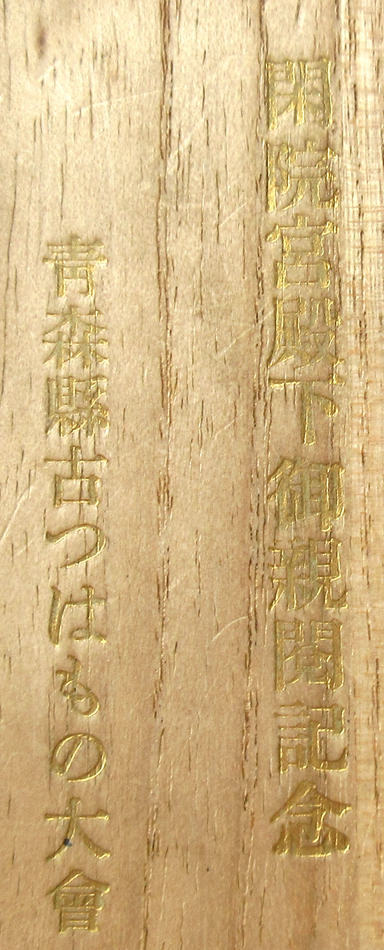 閑院宮殿下御親閲記念
青森縣古つはもの大會